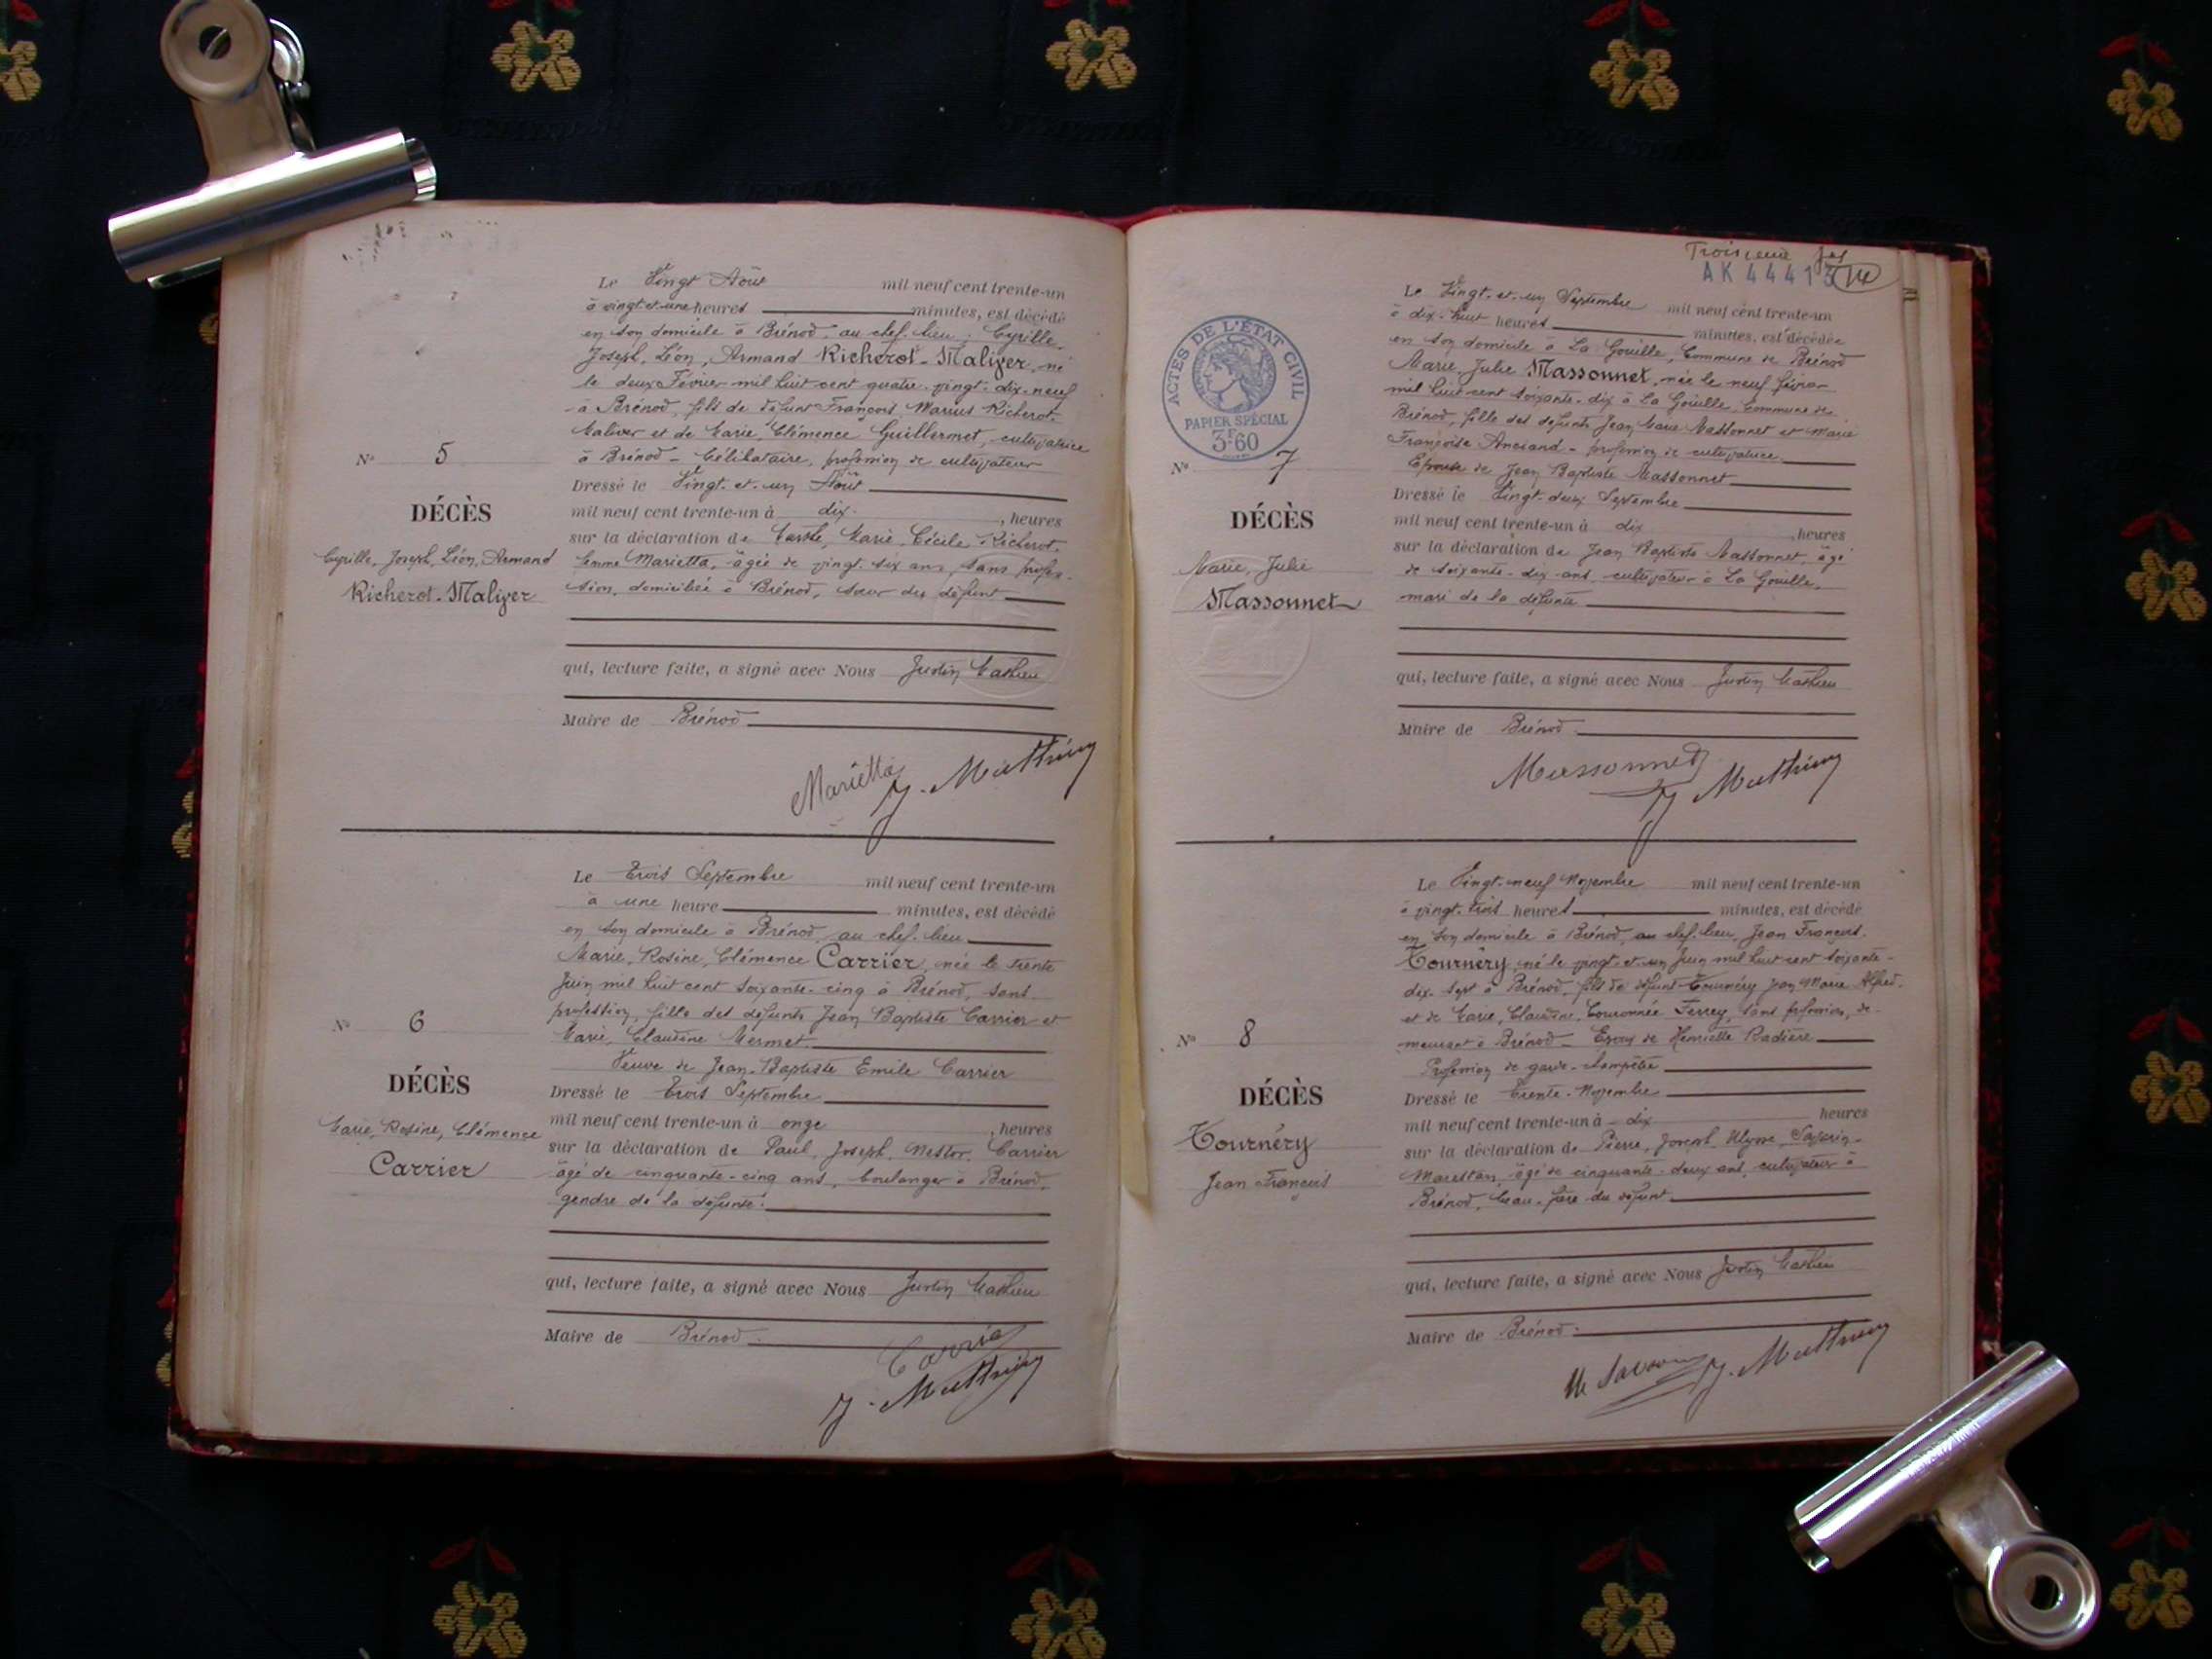 Le Vingt Août mil neuf cent trente-un
à vingt et une heures minutes, est décédé
en son domicile à Brénod, au chef-lieu, Cyrille,
Joseph, Léon, Armand Richerot-Maliver, né
le deux Février mil huit cent quatre-vingt-dix-neuf
à Brénod, fils de défunt François Marius Richerot-
Maliver et de Marie, Clémence Guillermet, cultivatrice
à Brénod - Célibataire, profession de cultivateur
N° 5
Dressé le Vingt-et-un Août
DÉCÈS
mil neuf cent trente-un à dix , heures
sur la déclaration de Marie, Cécile Richerot
Cyrille, Joseph, Léon, Armand
Richerot-Maliver
femme Marietta, âgée de vingt-six ans, sans profes-
sion, domiciliée à Brénod, sœur du défunt
qui, lecture faite, a signé avec Nous Justin Mathieu
Maire de Brénod
Marietta J. Mathieu
Le Trois Septembre mil neuf cent trente-un
à une heure minutes, est décédé
en son domicile à Brénod, au chef-lieu
Marie, Rosine, Clémence Carrier, née le trente
Juin mil huit cent soixante-cinq à Brénod, sans
profession, fille des défunts Jean Baptiste Carrier et
Marie, Claudine Mermet.
N° 6
Veuve de Jean-Baptiste Emile Carrier
DÉCÈS
Dressé le Trois Septembre
Marie, Rosine, Clémence
Carrier
mil neuf cent trente-un à onze , heures
sur la déclaration de Paul, Joseph, Nestor, Carrier
âgé de cinquante-cinq ans, boulanger à Brénod,
gendre de la défunte.
qui, lecture faite, a signé avec Nous Justin Mathieu
Maire de Brénod.
Carrier
J. Mathieu
Troisième
AK 44413 14
ACTES DE L'ÉTAT CIVIL
PAPIER SPÉCIAL
3F60
Le Vingt-et-un Septembre mil neuf cent trente-un
à dix-huit heures minutes, est décédée
en son domicile à La Gouille, Commune de Brénod
Marie, Julie Massonnet, née le neuf février
mil huit cent soixante-dix à La Gouille, Commune de
Brénod, fille des défunts Jean Marie Massonnet et Marie
Françoise Anciand - profession de cultivatrice
Epouse de Jean Baptiste Massonnet
N° 7
Dressé le Vingt-deux Septembre
DÉCÈS
mil neuf cent trente-un à dix , heures
Marie, Julie
Massonnet
sur la déclaration de Jean Baptiste Massonnet, âgé
de soixante-dix ans, cultivateur à La Gouille,
mari de la défunte
qui, lecture faite, a signé avec Nous Justin Mathieu
Maire de Brénod.
Massonnet J Mathieu
Le Vingt-neuf Novembre mil neuf cent trente-un
à vingt-trois heures minutes, est décédé
en son domicile à Brénod, au chef-lieu, Jean François
Tournéry, né le vingt-et-un Juin mil huit cent soixante-
dix-sept à Brénod, fils de défunt Tournéry Jean Marie Alfred
et de Marie, Claudine, Couronnée Ferrey, sans profession, de-
meurant à Brénod - Epoux de Henriette Radière
Profession de garde-champêtre
N° 8
DÉCÈS
Tournéry
Jean François
Dressé le Trente-Novembre
mil neuf cent trente-un à dix heures
sur la déclaration de Pierre, Joseph, Ulysse, Savarin-
Marestan, âgé de cinquante-deux ans, cultivateur à
Brénod, beau-frère du défunt
qui, lecture faite, a signé avec Nous Justin Mathieu
Maire de Brénod.
J. Mathieu